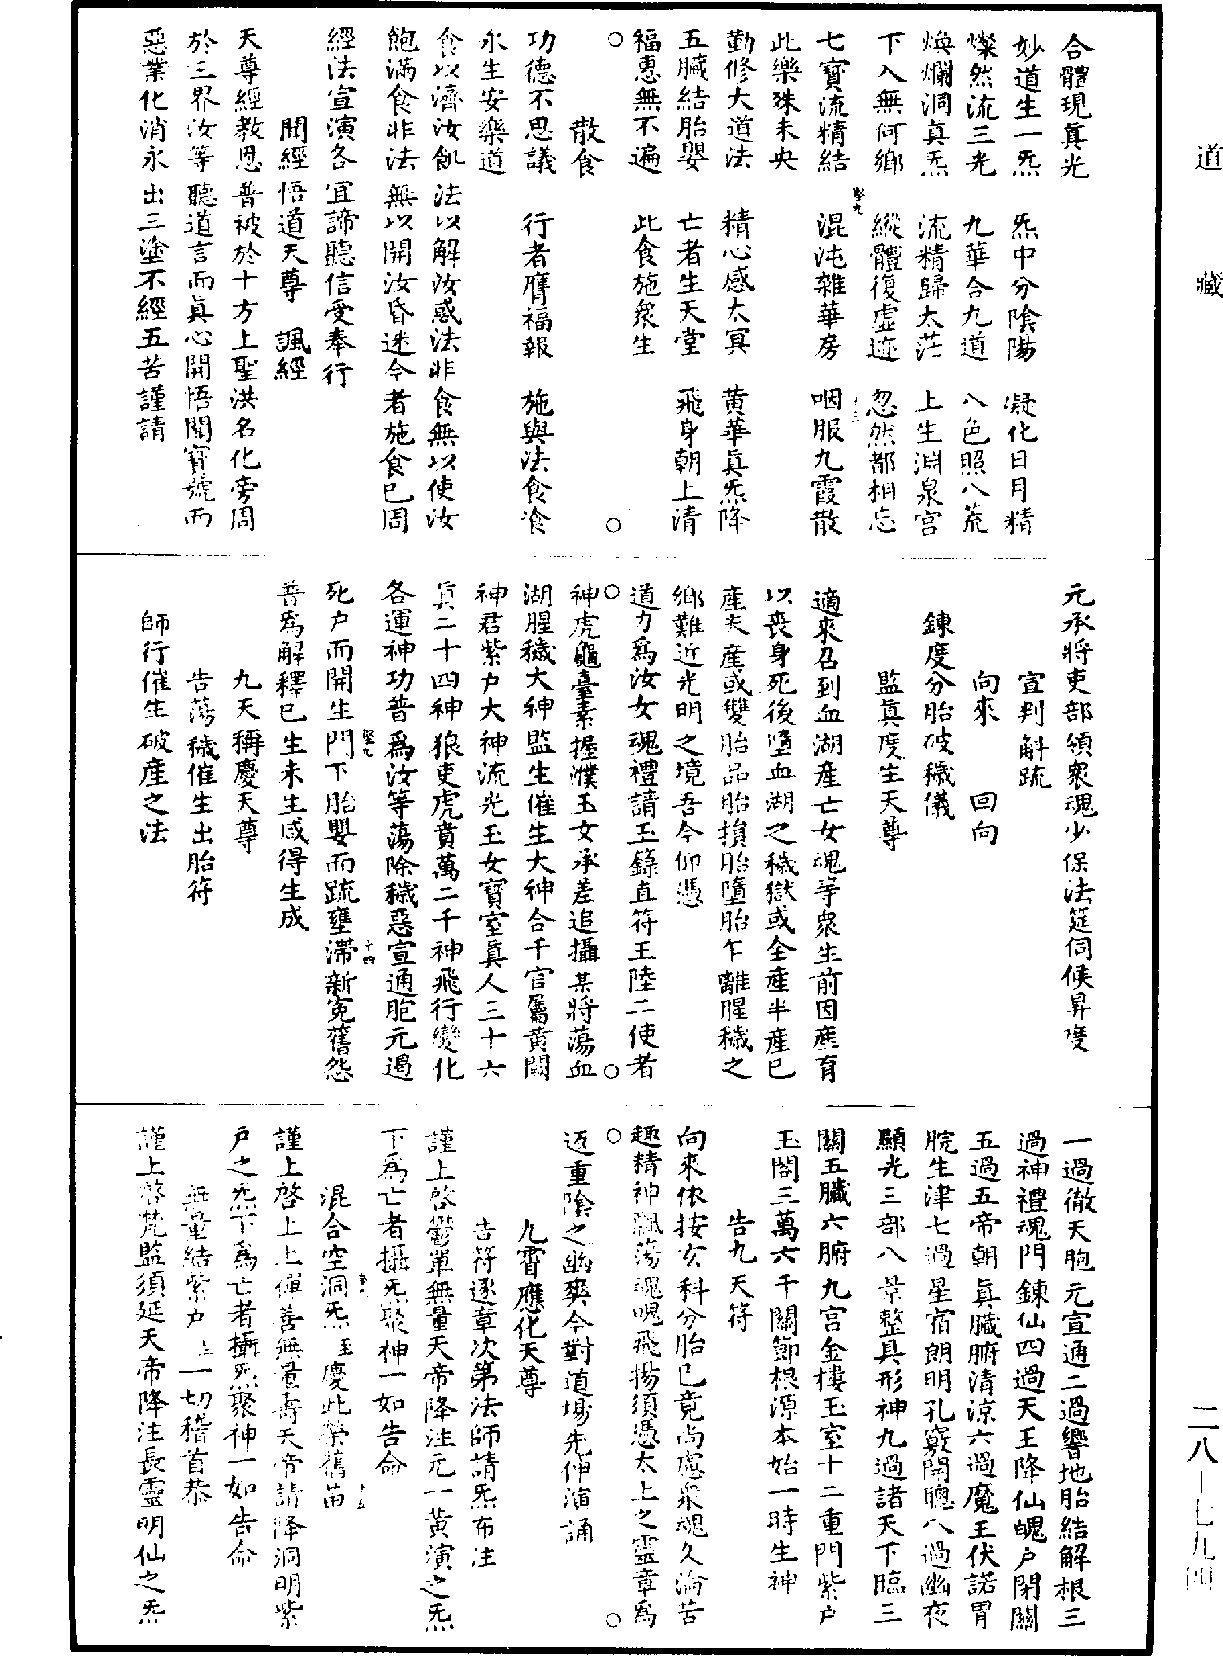 道藏
合體現真光
妙道生一炁　炁中分陰陽　凝化日月精
燦然流三光　九華合九道　八色照八荒
煥爛洞真炁　流精歸太茫　上生淵泉宮
下入無何鄉　縱體復虛迹　忽然都相忘
七寶流精結　混沌雜華房　咽服九霞散
此樂殊未央
勤修大道法　精心感太冥　黃華真炁降
五臟結胎嬰　亡者生天堂　飛身朝上清
福惠無不遍　此食施眾生
○　○
散食
功德不思議　行者膺福報　施與法食飡
永生安樂道
食以濟汝飢法以解汝惑法非食無以使汝
飽滿食非法無以開汝昏迷今者施食已周
經法宣演各宜諦聽信受奉行
聞經悟道天尊　諷經
天尊經教恩普被於十方上聖洪名化旁周
於三界汝等聽道言而真心開悟聞寶號而
惡業化消永出三塗不經五苦謹請
元承將吏部領眾魂少保法筵伺候昇度
宣判斛疏
向來　回向
鍊度分胎破穢儀
監真度生天尊
適來召到血湖產亡女魂等眾生前因產育
以喪身死後墮血湖之穢獄或全產半產已
產失產或雙胎品胎損胎墮胎乍離腥穢之
鄉難近光明之境吾今仰憑
道力為汝女魂禮請玉籙直符王陸二使者
○　○
神虎龜臺素握濮玉女承差追攝某將蕩血
湖腥穢大神監生催生大神合千官屬黃闕
神君紫戶大神流光玉女寶室真人三十六
真二十四神狼吏虎賁萬二千神飛行變化
各運神功普為汝等蕩除穢惡宣通胞元過
死戶而開生門下胎嬰而疏壅滯新冤舊怨
普為解釋已生未生咸得生成
九天稱慶天尊
告蕩穢催生出胎符
師行催生破產之法
一過徹天胞元宣通二過響地胎結解根三
過神禮魂門鍊仙四過天王降仙魄戶閉關
五過五帝朝真臟腑清涼六過魔王伏諾胃
脘生津七過星宿朗明孔竅開聰八過幽夜
顯光三部八景整具形神九過諸天下臨三
關五臟六腑九宮金樓玉室十二重門紫戶
玉閣三萬六千關節根源本始一時生神
告九天符
向來依按玄科分胎已竟尚慮眾魂久淪苦
趣精神飄蕩魂魄飛揚須憑太上之靈章為
○　○
返重陰之幽爽今對道場先伸誦
九霄應化天尊
告符逐章次第法師請炁布注
謹上啟鬱單無量天帝降注元一黃演之炁
下為亡者攝炁聚神一如告命
混合空洞炁　慶此榮舊苗
謹上啟上上禪善無量壽天帝請降洞明紫
戶之炁下為亡者攝炁聚神一如告命
無量結紫戶　一切稽首恭
謹上啟梵監須延天帝降注長靈明仙之炁
二八—七九四